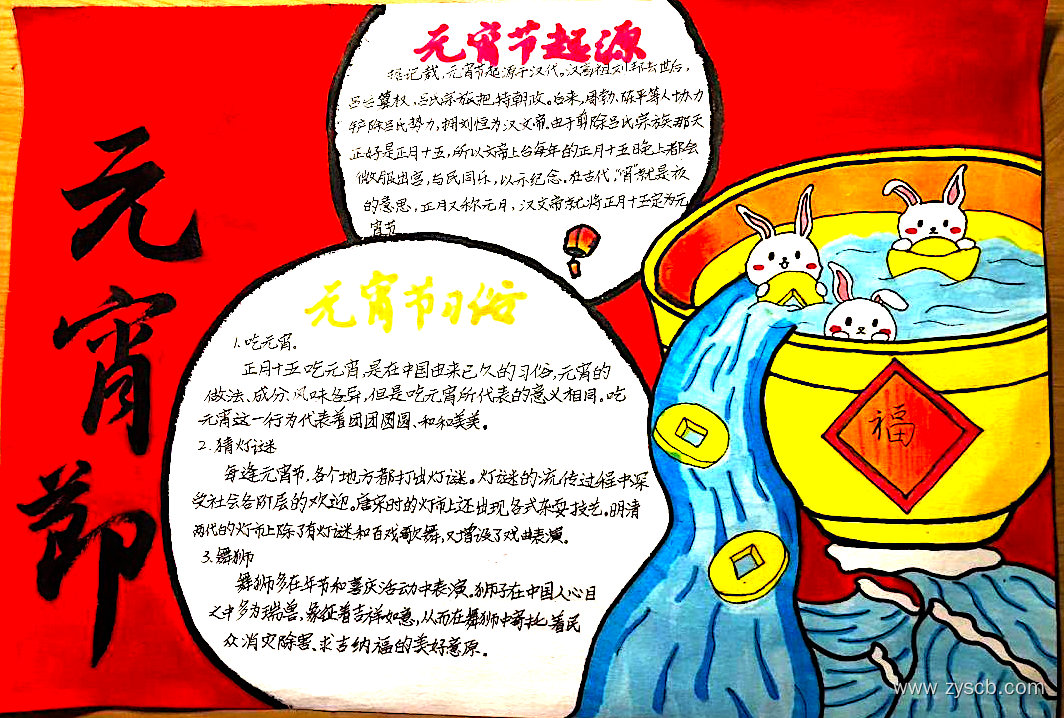 元宵節
元宵节起源
据记载,元宵节起源于汉代。汉高祖刘邦去世后,
吕后篡权、吕氏宗族把持朝政。后来,周勃、陈平等人协力
铲除吕氏势力,拥刘恒为汉文帝。由于剪除吕氏宗族那天
正好是正月十五,所以文帝上台每年的正月十五日晚上都会
微服出宫,与民同乐,以示纪念。在古代,“宵”就是夜
的意思,正月又称元月,汉文帝就将正月十五定为元
宵节
元宵节习俗
1.吃元宵。
正月十五吃元宵,是在中国由来已久的习俗,元宵的
做法、成分、风味各异,但是吃元宵所代表的意义相同。吃
元宵这一行为代表着团团圆圆、和和美美。
2.猜灯谜
每逢元宵节,各个地方都打出灯谜。灯谜的流传过程中深
受社会各阶层的欢迎。唐宋时的灯市上还出现各式杂耍技艺。明清
两代的灯市上除了有灯谜和百戏歌舞,又增设了戏曲表演。
3.舞狮
舞狮多在年节和喜庆活动中表演。狮子在中国人心目
中多为瑞兽,象征着吉祥如意,从而在舞狮中寄托着民
众消灾除害、求吉纳福的美好意愿。
福
www.zyscb.com